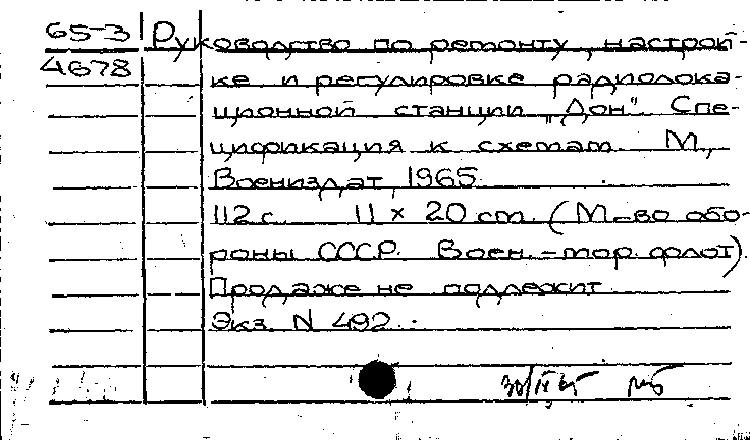 65-3 Руководство по ремонту, настрой-
4678 ке и регулировке радиолока-
ционной станции "Дон". Спе-
цификация к схемам. М.,
Воениздат, 1965.
112 с. 11 × 20 см. (М-во обо-
роны СССР. Воен.-мор. флот).
Продаже не подлежит
Экз. N 492.